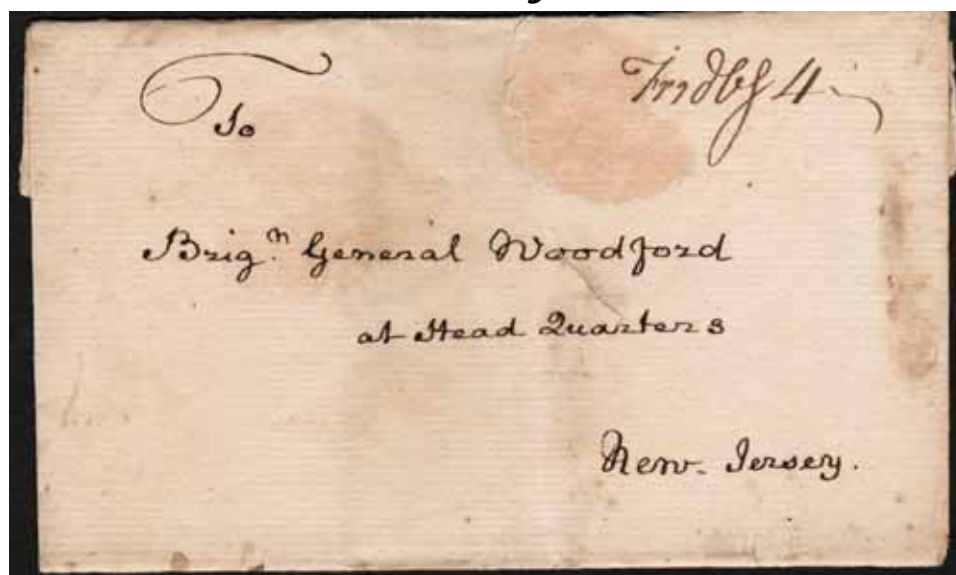 To
Frdbg 4
Brig.n General Woodford
at Head Quarters
New. Jersey.